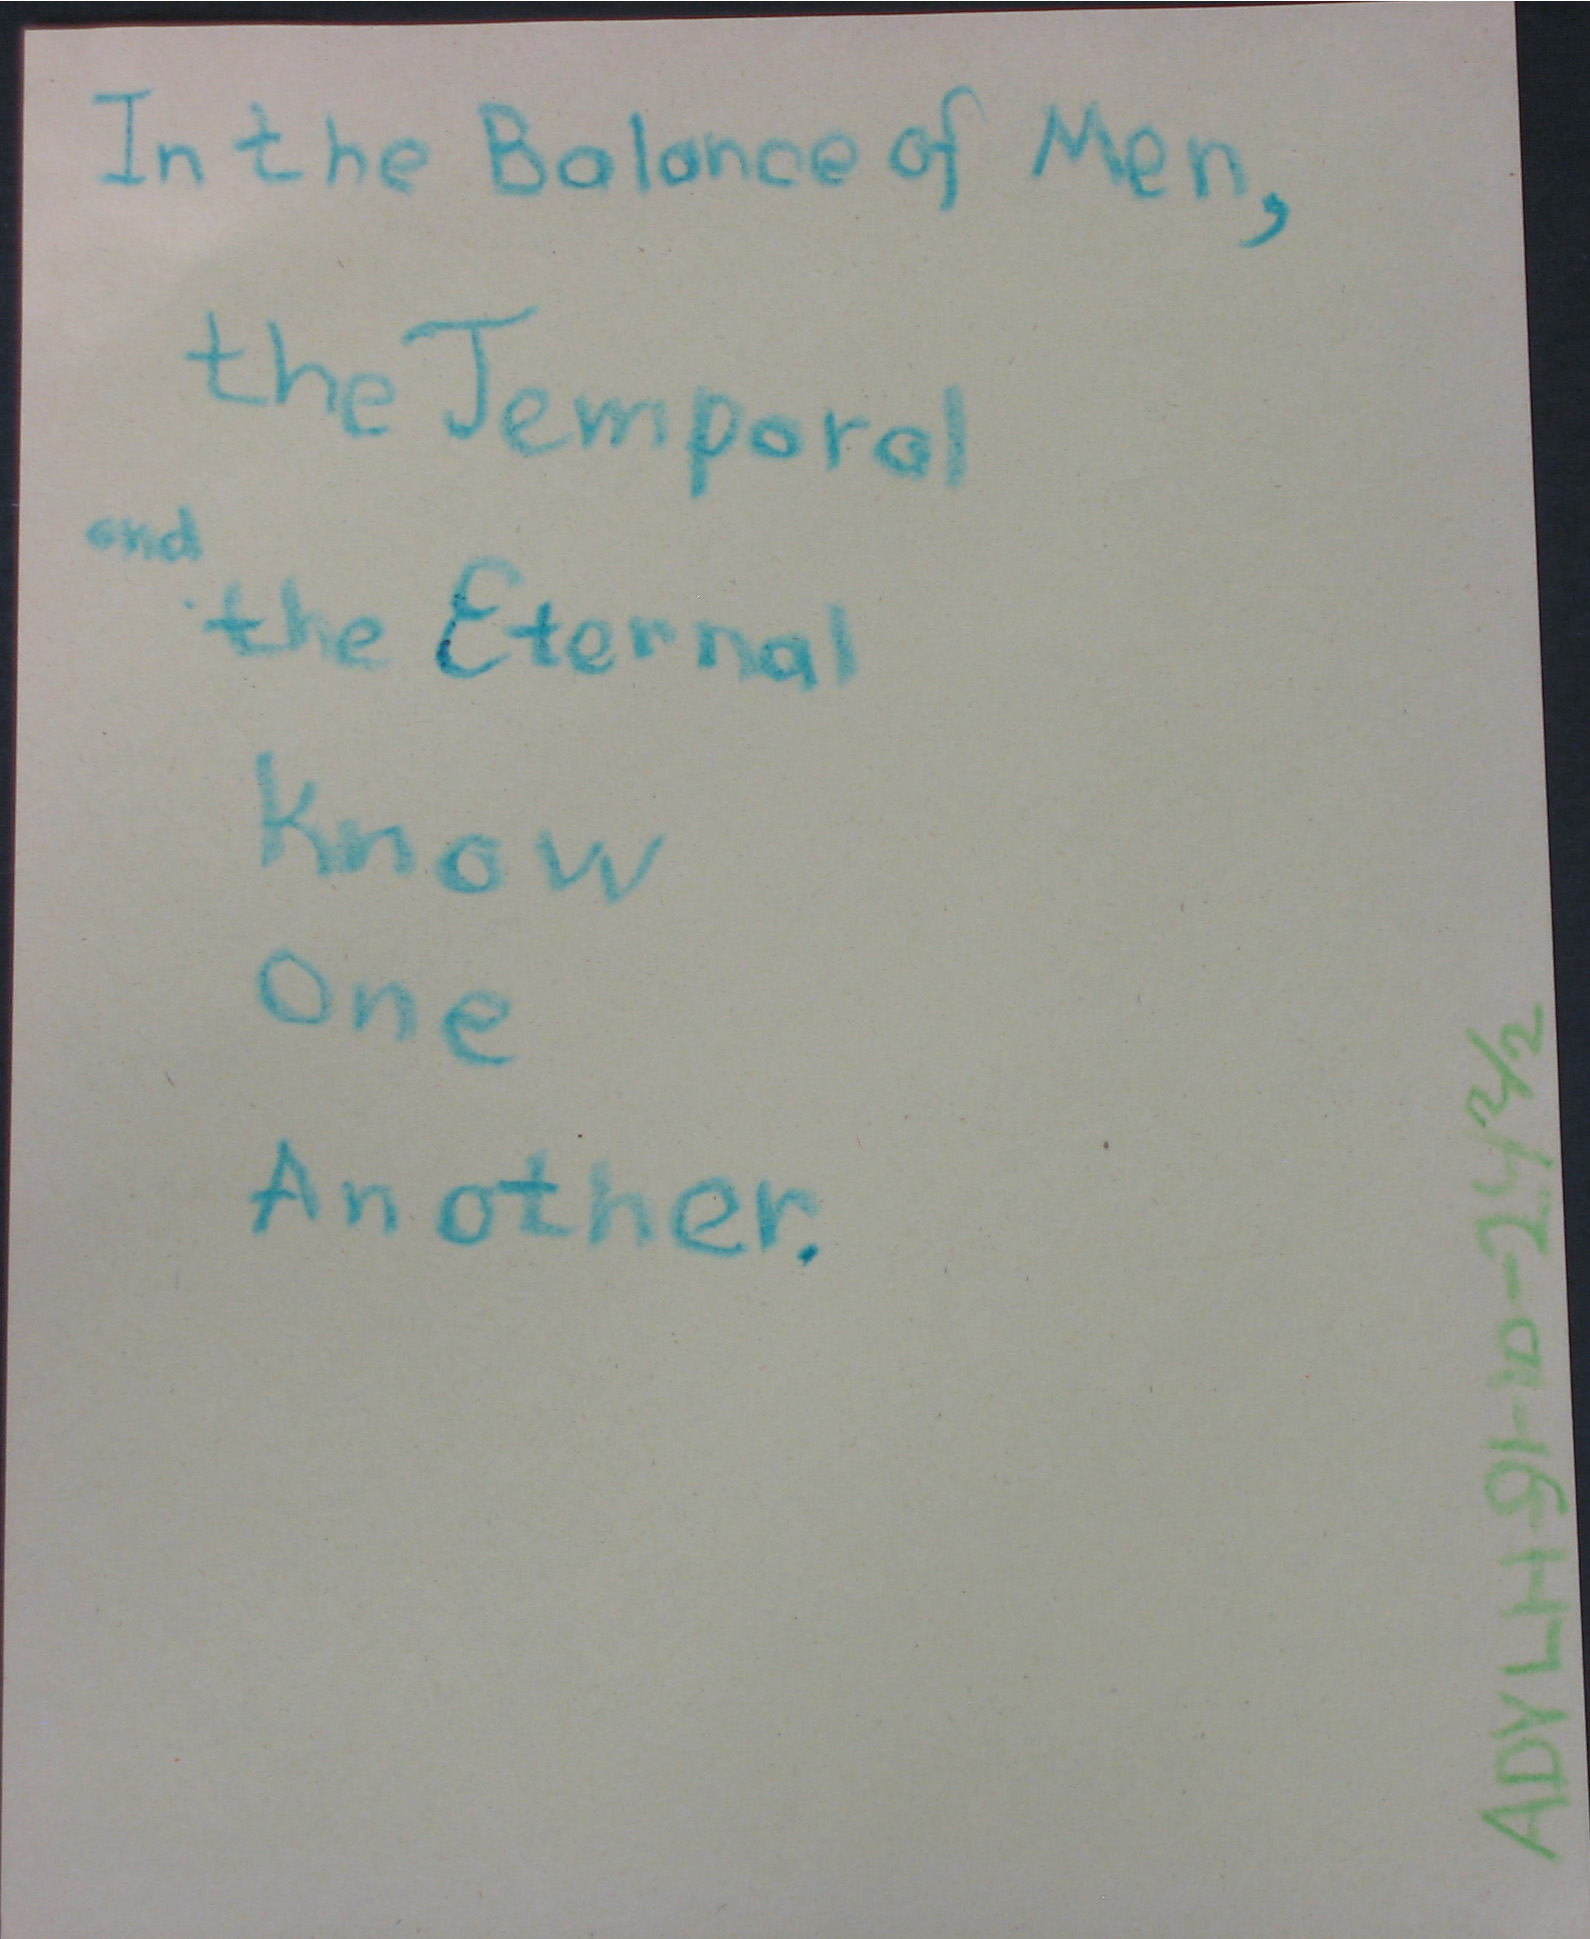 In the Balance of Men,
the Temporal
and
the Eternal
Know
One
Another.
ADYLH 91-10-24 2/2